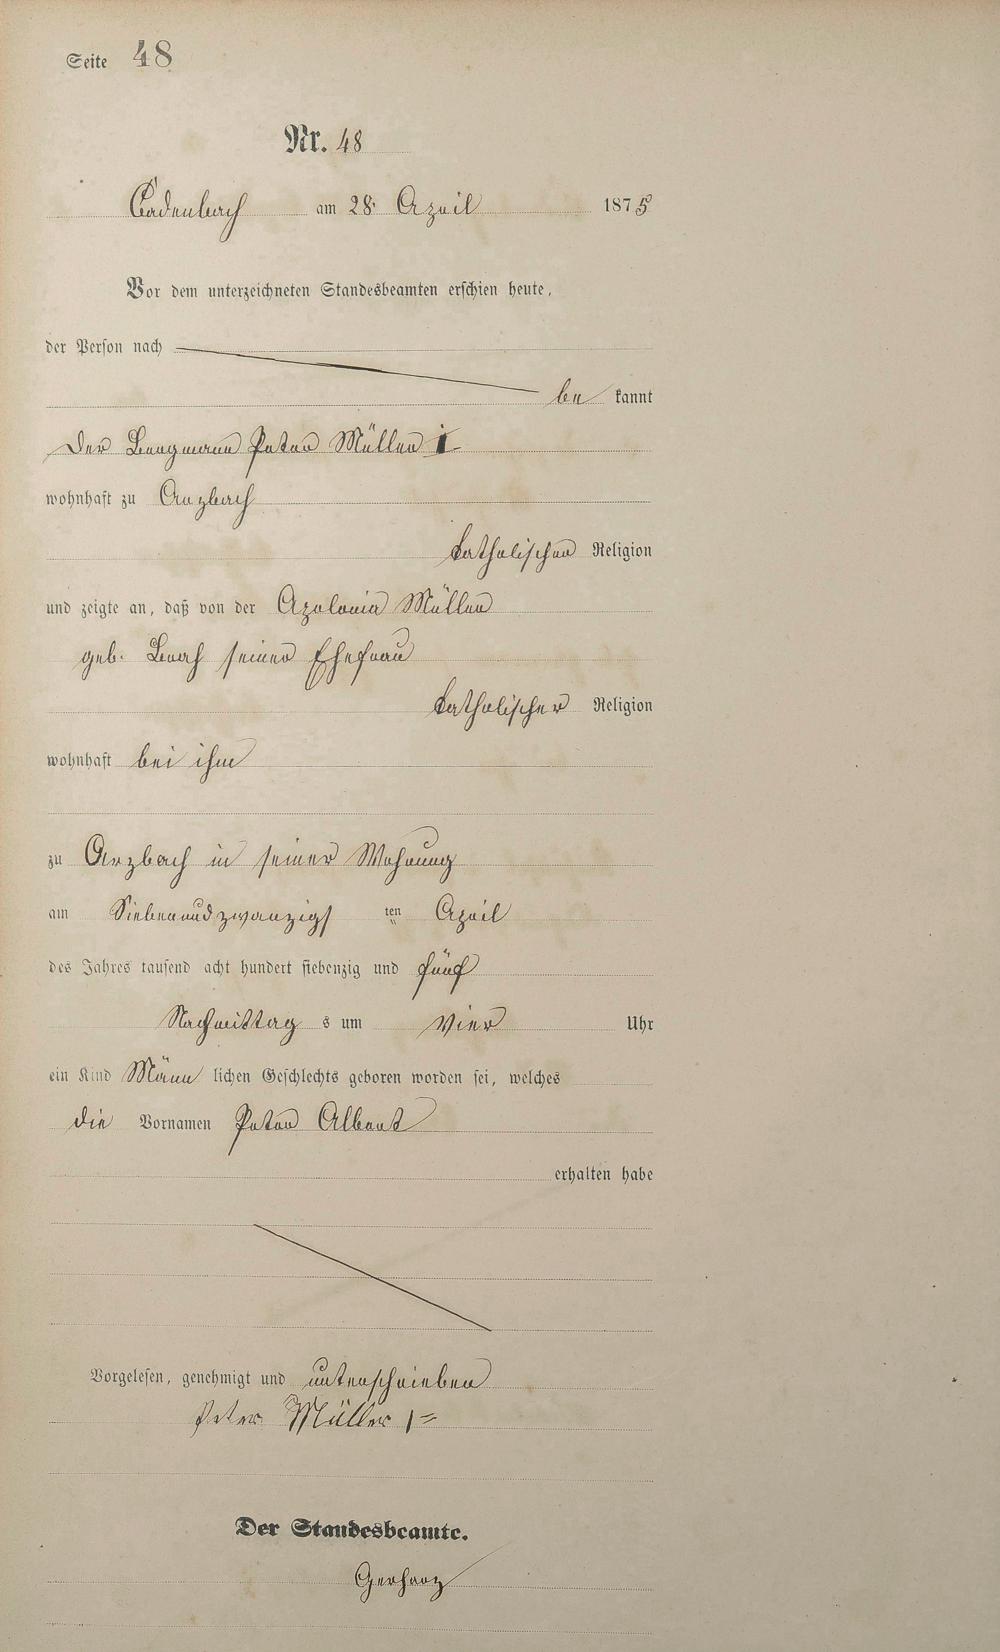 Seite 48
Nr. 48
Cadenbach am 28. April 1875
Vor dem unterzeichneten Standesbeamten erschien heute,
der Person nach
be kannt
der Bergmann Peter Müller I
wohnhaft zu Arzbach
katholischer Religion
und zeigte an, daß von der Apolonia Müller
geb. Bach seiner Ehefrau
katholischer Religion
wohnhaft bei ihm
zu Arzbach in seiner Wohnung
am Siebenundzwanzigs ten April
des Jahres tausend acht hundert siebenzig und fünf
Nachmittag s um vier Uhr
ein Kind Männ lichen Geschlechts geboren worden sei, welches
die Vornamen Peter Albert
erhalten habe
Vorgelesen, genehmigt und unterschrieben
Peter Müller 1=
Der Standesbeamte.
Gerharz